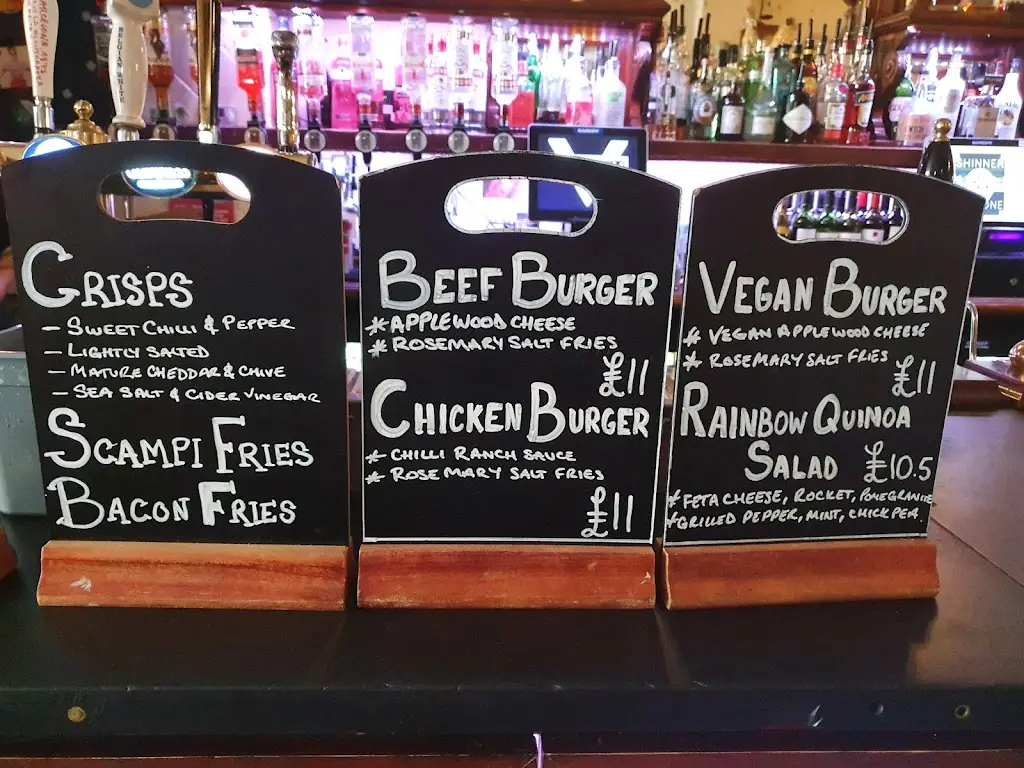 CRISPS
- SWEET CHILLI & PEPPER
- LIGHTLY SALTED
- MATURE CHEDDAR & CHIVE
- SEA SALT & CIDER VINEGAR
SCAMPI FRIES
BACON FRIES
BEEF BURGER
* APPLEWOOD CHEESE
* ROSEMARY SALT FRIES
£11
CHICKEN BURGER
* CHILLI RANCH SAUCE
* ROSEMARY SALT FRIES
£11
VEGAN BURGER
* VEGAN APPLEWOOD CHEESE
* ROSEMARY SALT FRIES
£11
RAINBOW QUINOA
SALAD £10.5
* FETA CHEESE, ROCKET, POMEGRANITE
* GRILLED PEPPER, MINT, CHICKPEA.
SHINNER